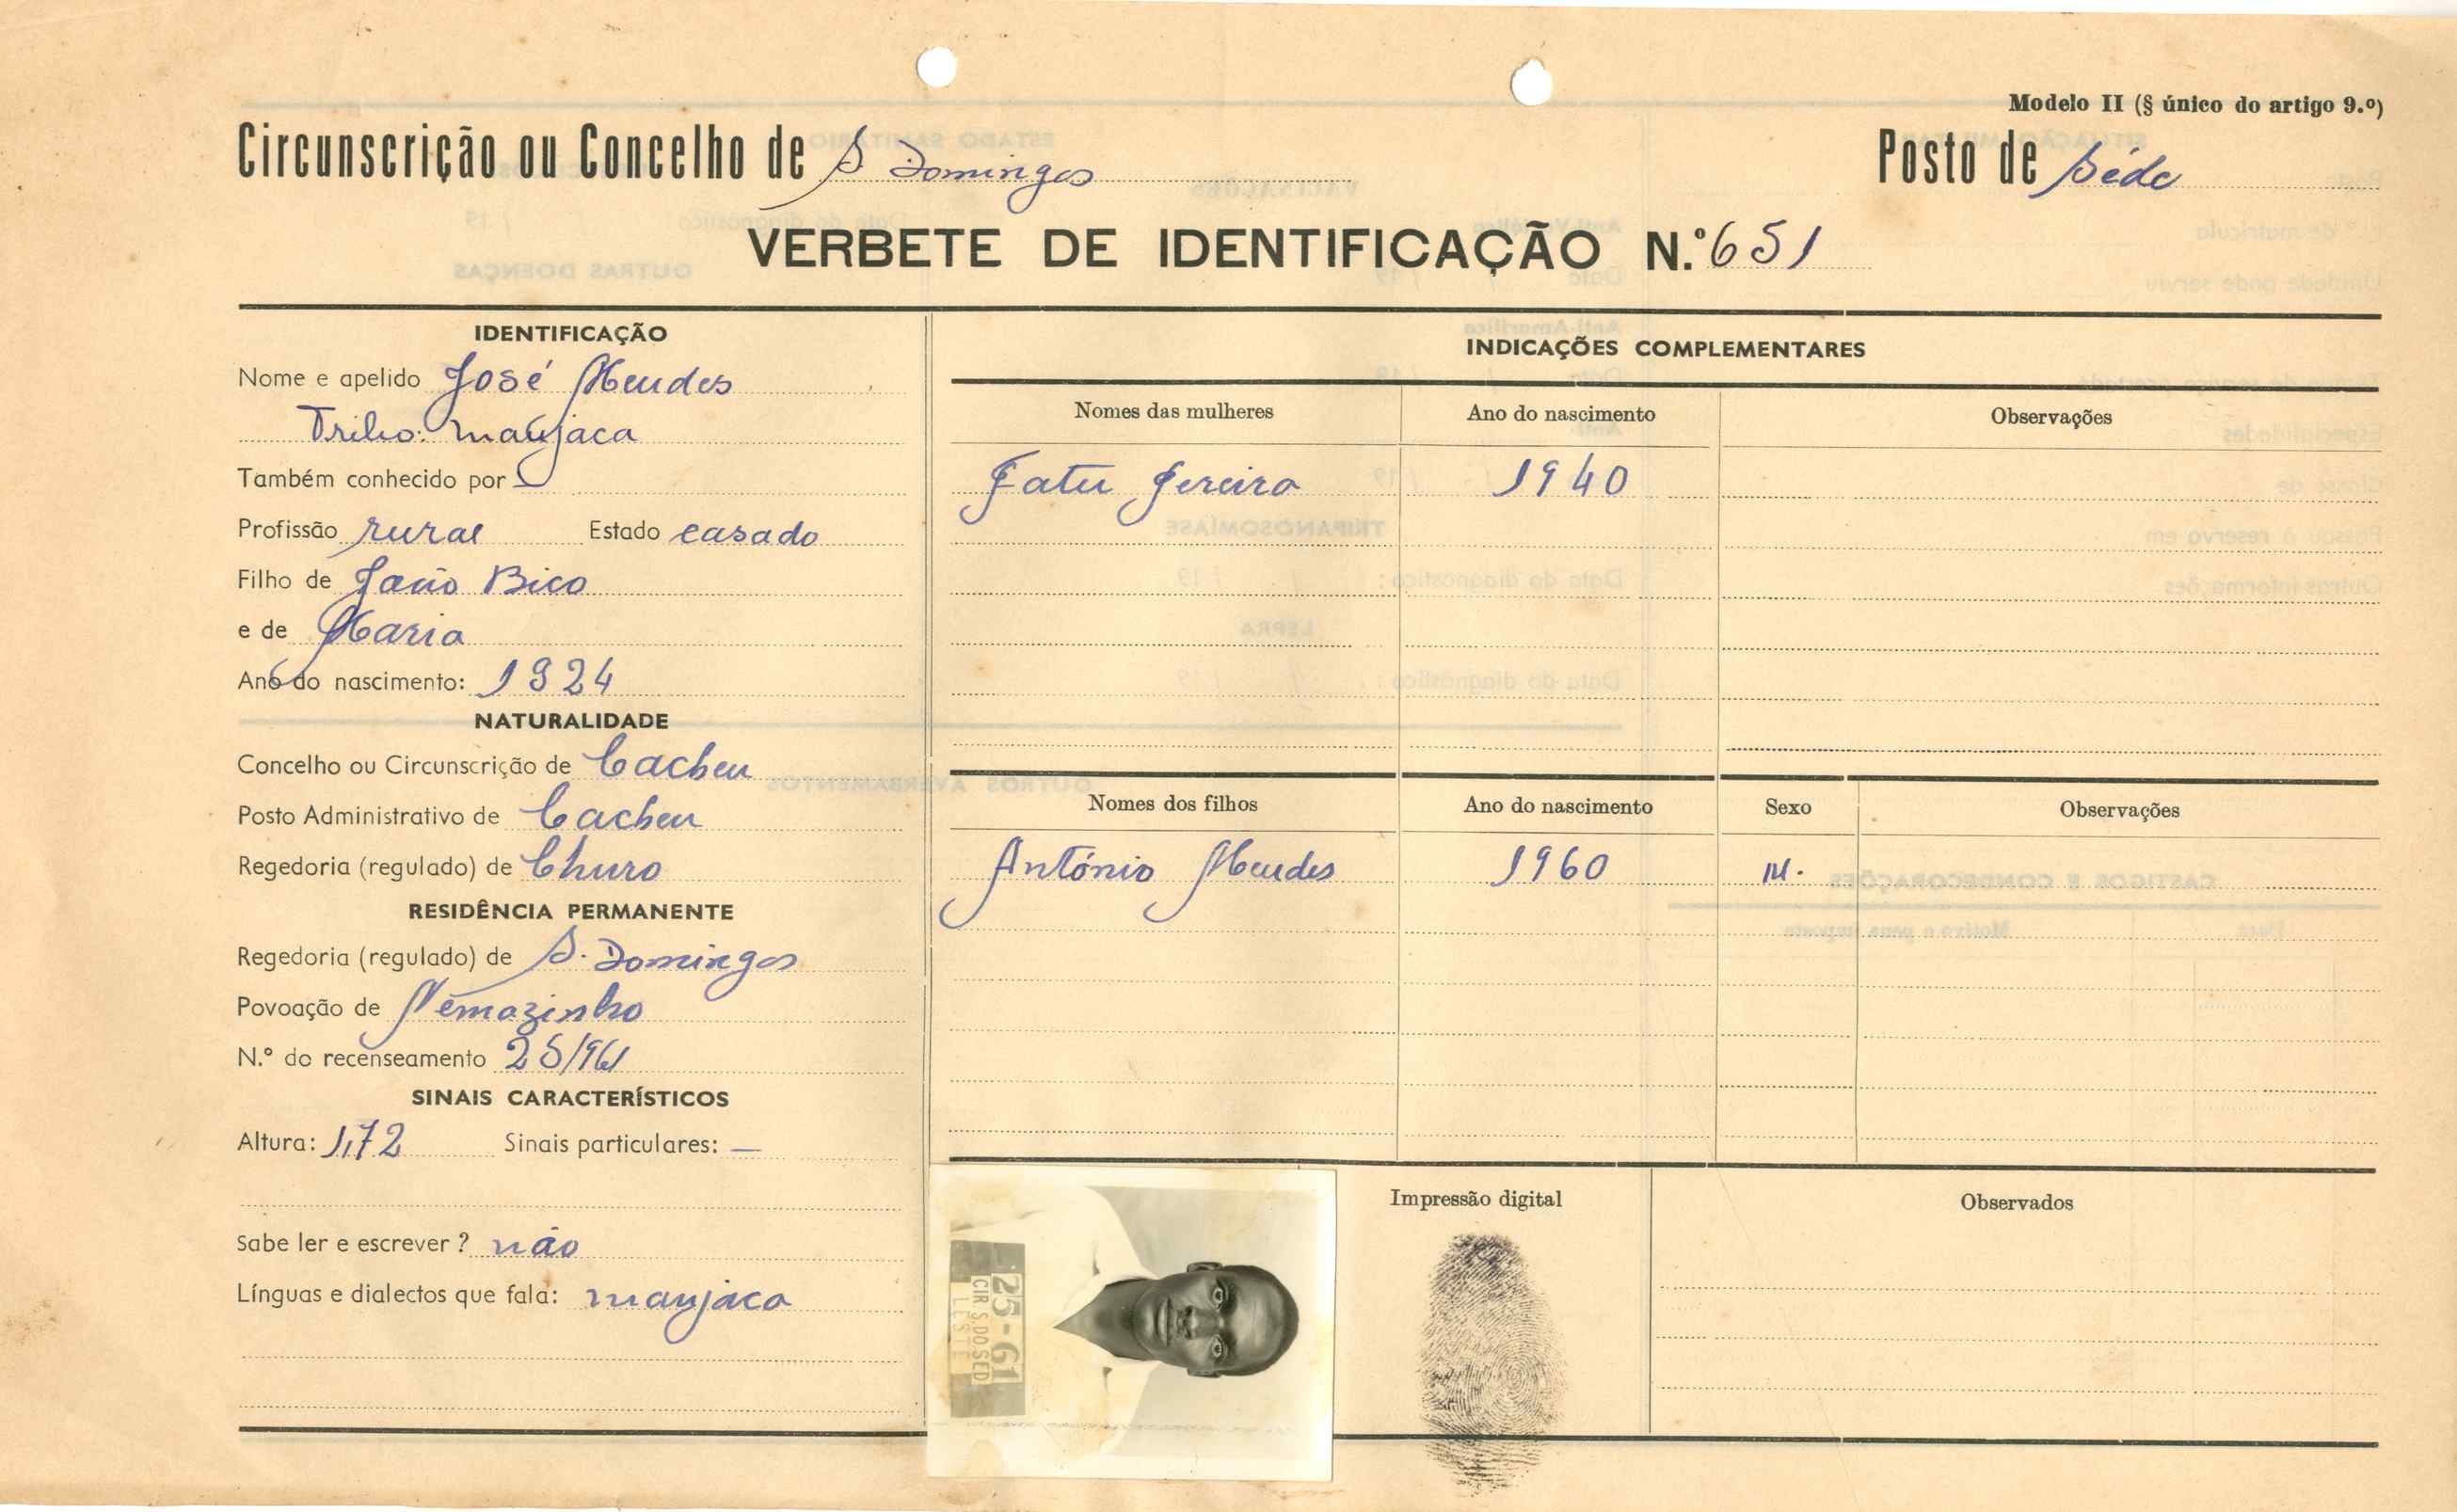 Modelo II (§ único do artigo 9.º)
Circunscrição ou Concelho de S Domingos Posto de Séde
VERBETE DE IDENTIFICAÇÃO N.º 651
IDENTIFICAÇÃO
Nome e apelido José Mendes
Tribo: manjaca
Também conhecido por
Profissão rural Estado casado
Filho de João Bico
e de Maria
Ano do nascimento: 1924
NATURALIDADE
Concelho ou Circunscrição de Cacheu
Posto Administrativo de Cacheu
Regedoria (regulado) de Churo
RESIDÊNCIA PERMANENTE
Regedoria (regulado) de S. Domingos
Povoação de Nemazinho
N.º do recenseamento 25/961
SINAIS CARACTERÍSTICOS
Altura: 1,72 Sinais particulares: —
Sabe ler e escrever? não
Línguas e dialectos que fala: manjaca
INDICAÇÕES COMPLEMENTARES
Nomes das mulheres Ano do nascimento Observações
Fatu Pereira 1940
Nomes dos filhos Ano do nascimento Sexo Observações
António Mendes 1960 M.
25-61
CIR.S.DO.SED
LESTE
Impressão digital
Observados